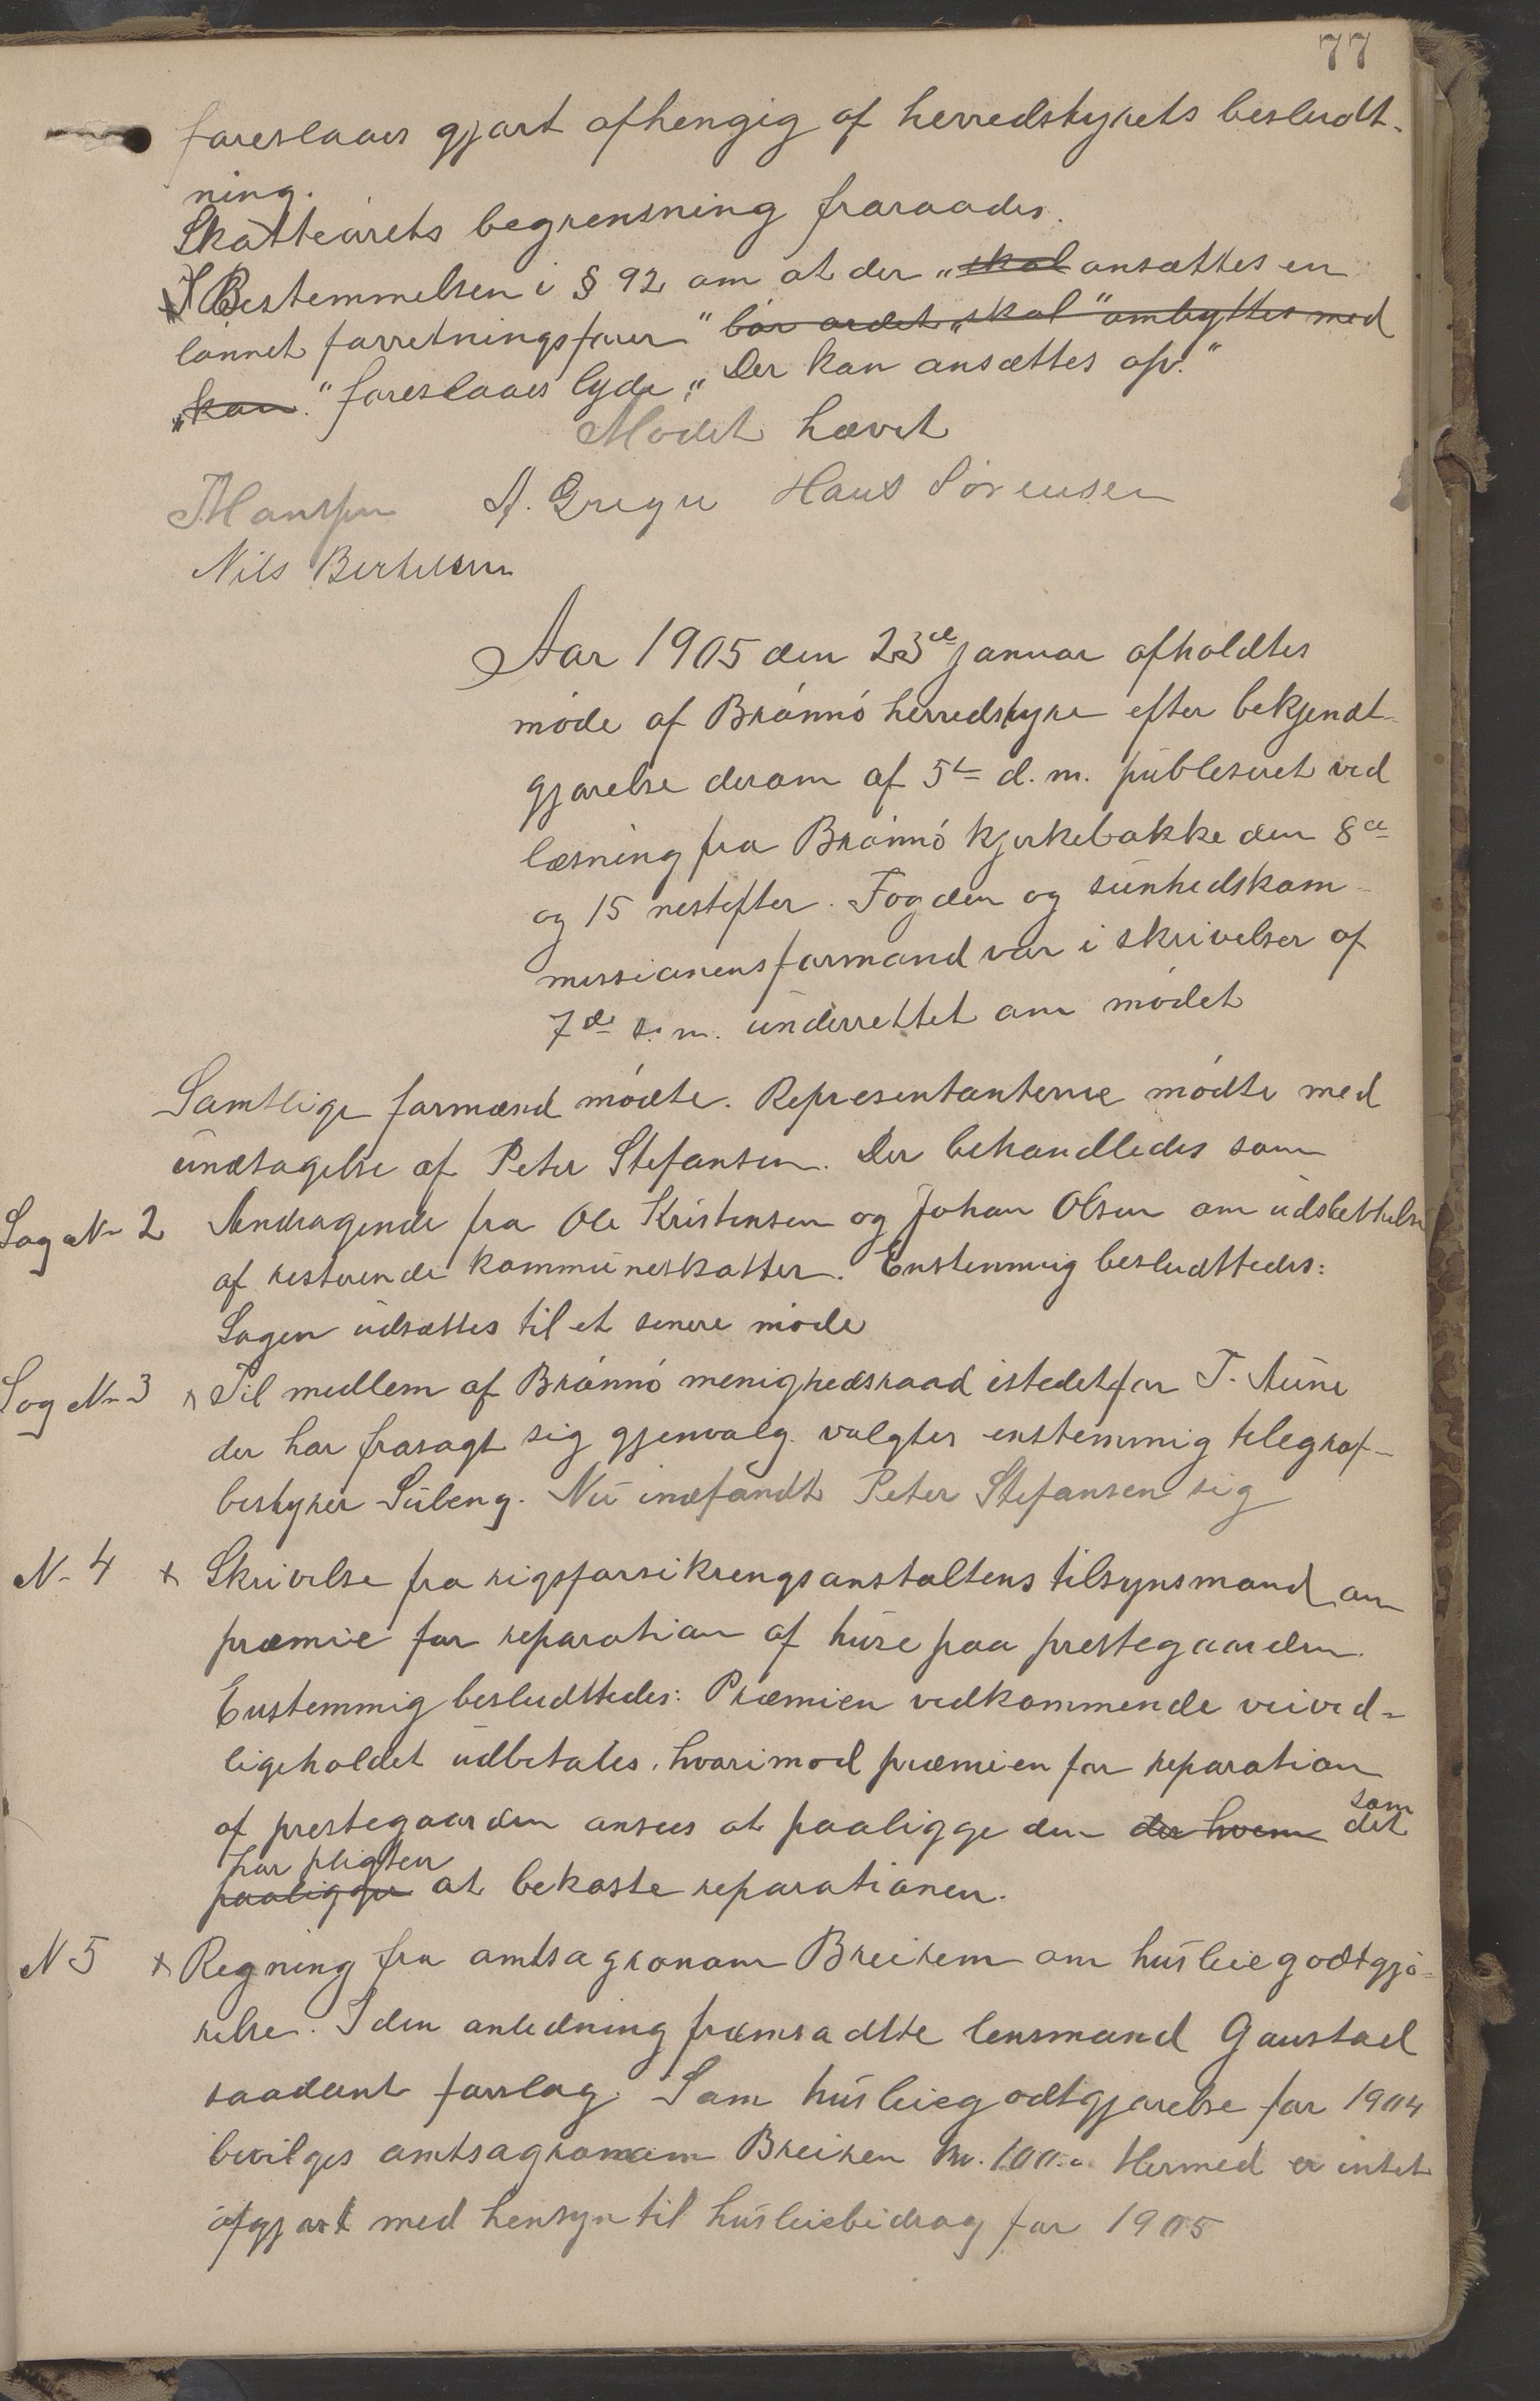 77
foreslaaes gjort afhengig af herredstyrets besludt-
ning.
Skatteårets begrensning fraraades.
I Bestemmelsen i § 92 om at der „skal ansættes en
lønnet forretningsfører" bør ordet „skal" ombyttes med
„kan." foreslaaes lyde „Der kan ansættes osv."
Mødet hævet
A. Greger Hans Sørensen
Nils Bertelsen
Aar 1905 den 23de januar afholdtes
møde af Brønnø herredstyre efter bekjendt-
gjørelse derom af 5te d. m. publeseret ved
læsning fra Brønnø kjerkebakke den 8de
og 15 nestefter. Fogden og sunhedskom-
missionensformand var i skrivelser af
7de s. m. underrettet om mødet
Samtlige formænd mødte. Representanterne mødte med
undtagelse af Peter Stefansen. Der behandledes som
Sag No 2 Andragende fra Ole Kristensen og Johan Olsen om udslettelse
af resterende kommuneskatter. Enstemmig besludttedes:
Sagen udsættes til et senere møde
Sag No 3 x Til medlem af Brønnø menighedsraad istedetfor T. Aune
der har frasagt sig gjenvalg valgtes enstemmig telegraf-
bestyrer Sübeng. Nu indfandt Peter Stefansen sig
No 4 x Skrivelse fra rigsforsikrengsanstaltens tilsynsmand om
præmie for reparation af huse paa prestegaarden.
Enstemmig besludttedes: Præmien vedkommende veived-
ligeholdet udbetales, hvorimod præmien for reparation
af prestegaarden ansees at paaligge den der hvem som det
har pligten
paaligger at bekoste reparationen.
N 5 x Regning fra amtsagronom Breirem om husleiegodtgjø-
relse. I den anledning fremsadtte lensmand Gaustad
saadant forslag: Som husleiegodtgjørelse for 1904
bevilges amtsagronom Breirem kr. 100.00 Hermed er intet
afgjort med hensyn til husleiebidrag for 1905